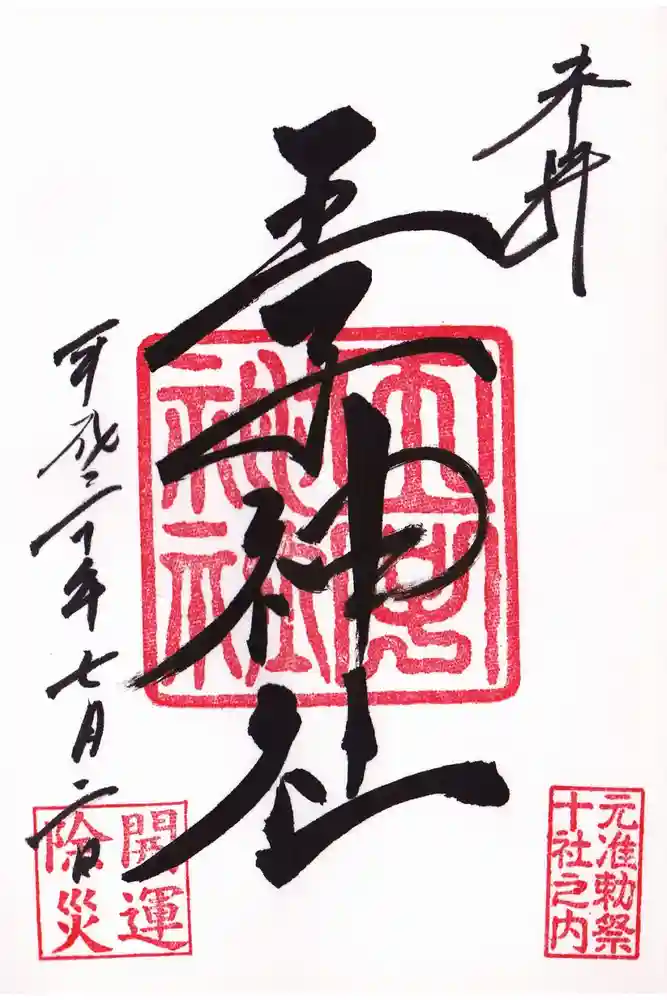 奉拝
王子神社
王子
神社
平成二十年七月二日
元准勅祭
十社之内
開運
除災